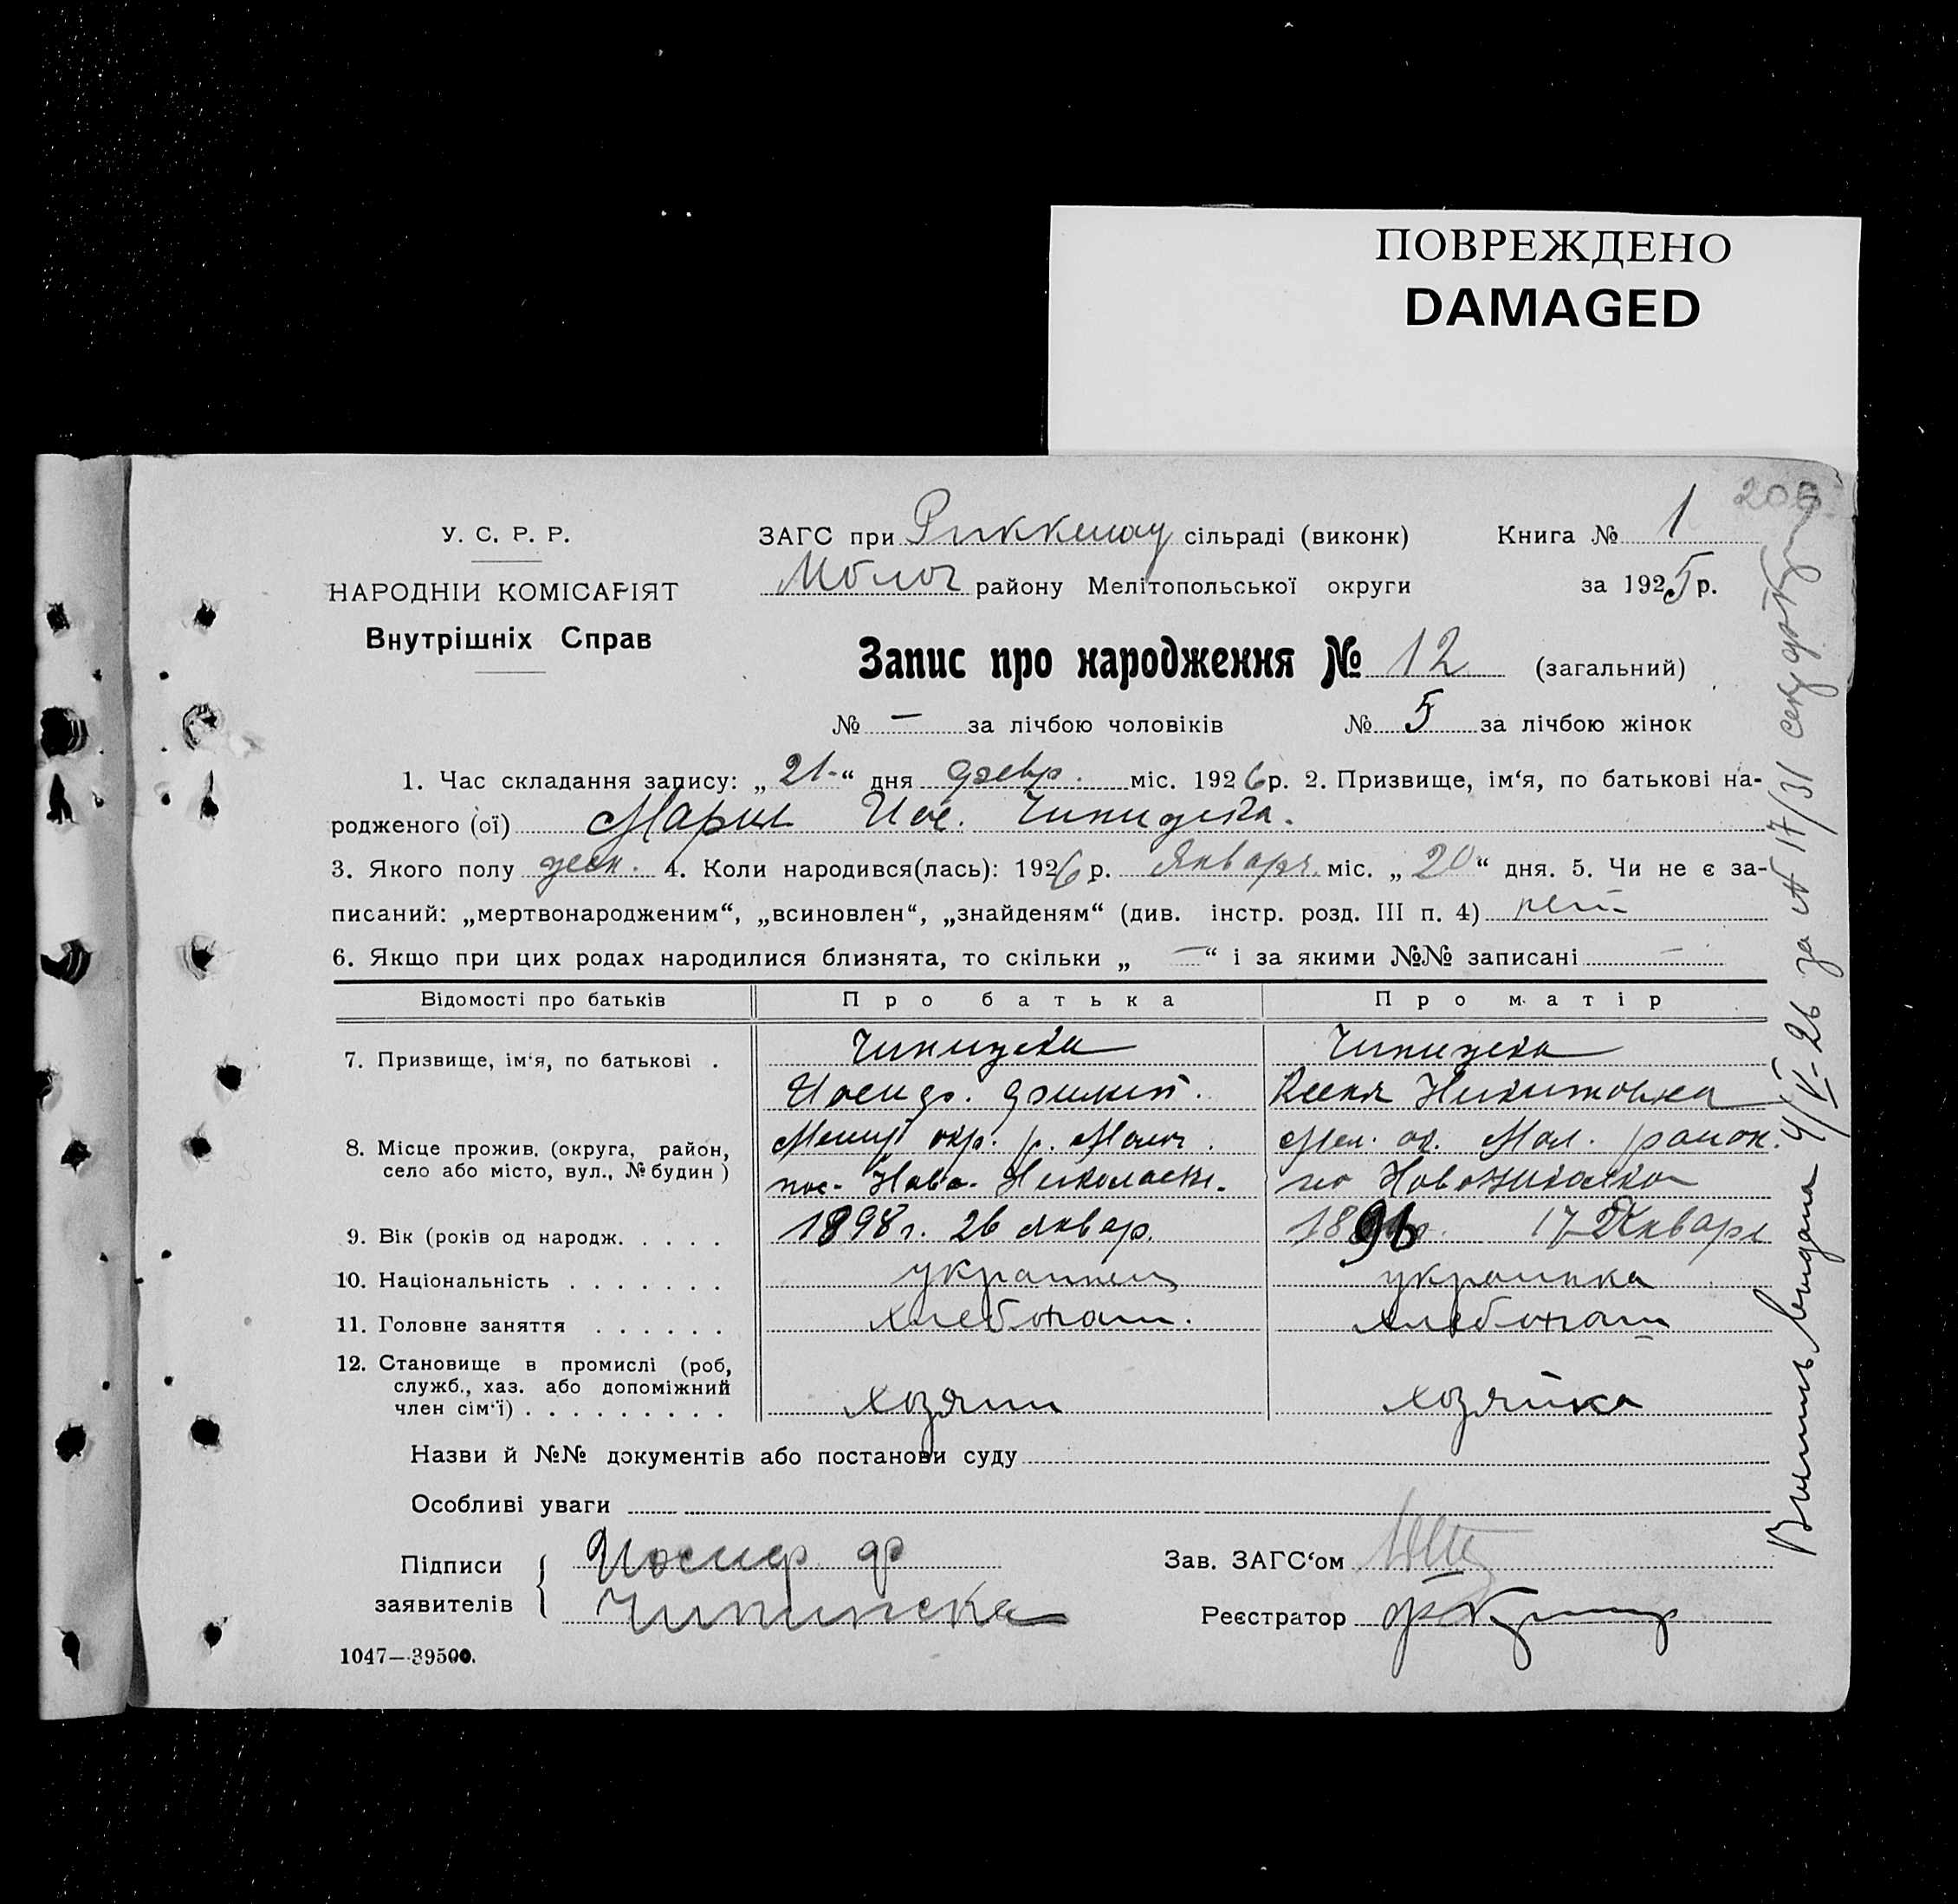 ПОВРЕЖДЕНО
DAMAGED
205
У. С. Р. Р.
НАРОДНІЙ КОМІСАРІЯТ
Внутрішніх Справ
ЗАГС при Риккенау сільраді (виконк) Книга № 1
Молоч району Мелітопольської округи за 1925 р.
Запис про народження № 12 (загальний)
№ — за лічбою чоловіків № 5 за лічбою жінок
1. Час складання запису: „21-“ дня февр. міс. 1926 р. 2. Призвище, ім‘я, по батькові на-
родженого (ої) Мария Иос.
3. Якого полу жен. 4. Коли народився(лась): 1926 р. Января міс. „20“ дня. 5. Чи не є за-
писаний: „мертвонародженим“, „всиновлен“, „знайденям“ (див. інстр. розд. III п. 4) нет
6. Якщо при цих родах народилися близнята, то скільки „—“ і за якими №№ записані —
Відомості про батьків Про батька Про матір
7. Призвище, ім‘я, по батькові .
Иосиф. Никитовна
8. Місце прожив. (округа, район, окр. р. Молоч. Мел. ок. Мол. район.
село або місто, вул., № будин ) пос. Ново-Николаевк.
9. Вік (років од народж. . . . . 1898 г. 26 январ. 1896 17 Января
10. Національність . . . . . . . украинец украинка
11. Головне заняття . . . . . . хлебопаш. хлебопаш
12. Становище в промислі (роб,
служб., хаз. або допоміжний
член сім‘ї) . . . . . . . . . хозяин хозяйка
Назви й №№ документів або постанови суду
Особливі уваги
Підписи заявителів { Иосиф Ф
Чипинска
Зав. ЗАГС‘ом
Реєстратор
1047—39500.
Выпись выдана 4/V-26 за № 17/31 секр